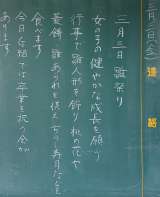 三月三日(金)
連絡
三月三日 雛祭り
女の子の健やかな成長を願う
行事で雛人形を飾り桃の花や
菱餅 雛あられを供え ちらし寿司などを
食べます
今日 組では卒業を祝う会が
あります